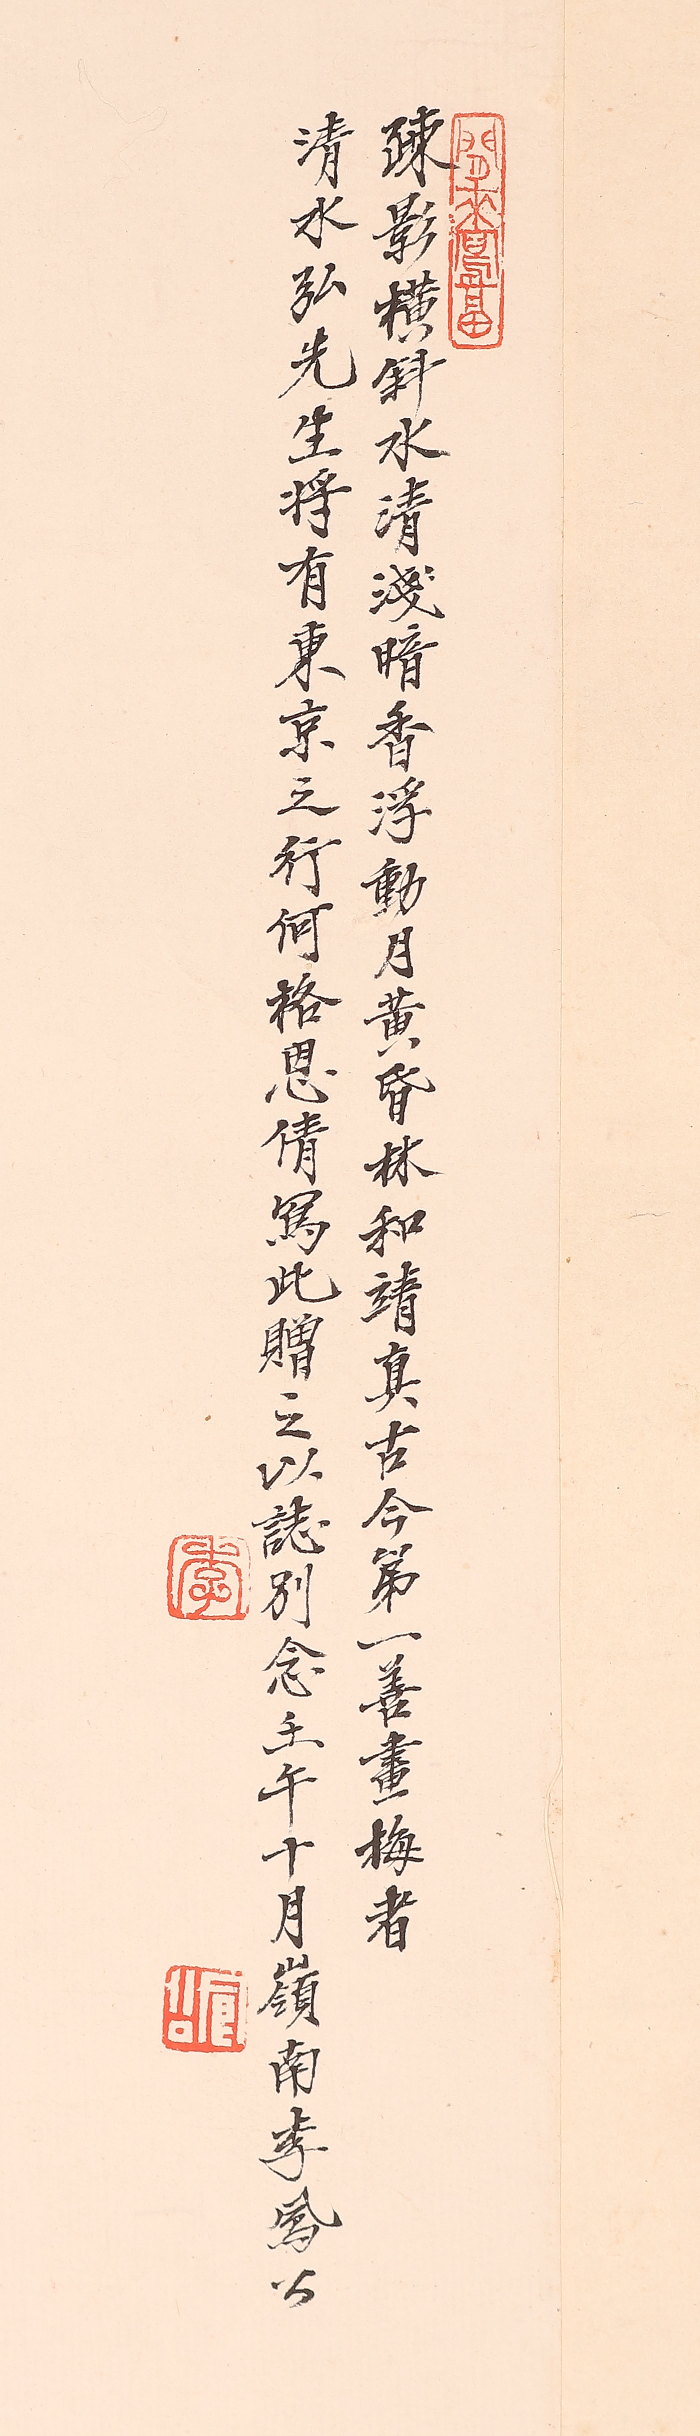 疎影橫斜水清淺暗香浮動月黃昏林和靖真古今第一善畫梅者
清水弘先生将有東京之行何格恩倩寫此贈之以誌別念壬午十月嶺南李鳳公
李